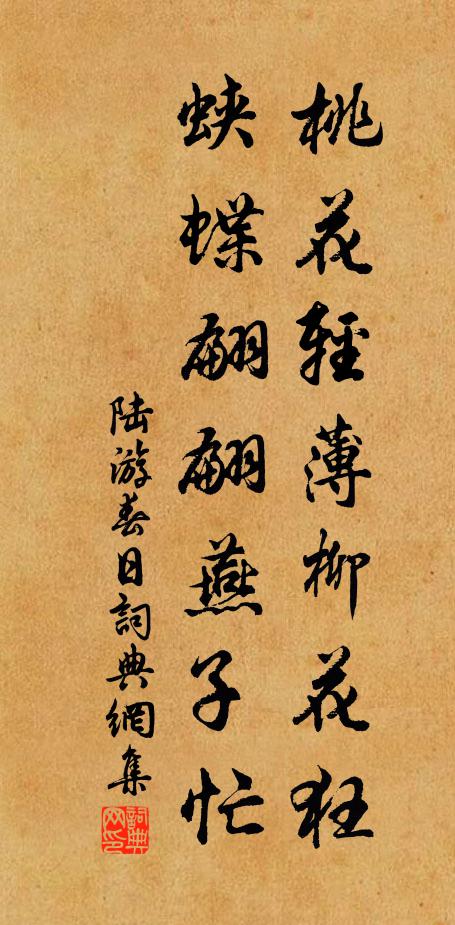 桃花輕薄柳花狂
蛺蝶翩翩燕子忙
陆游春日詞典網集
詞典網印